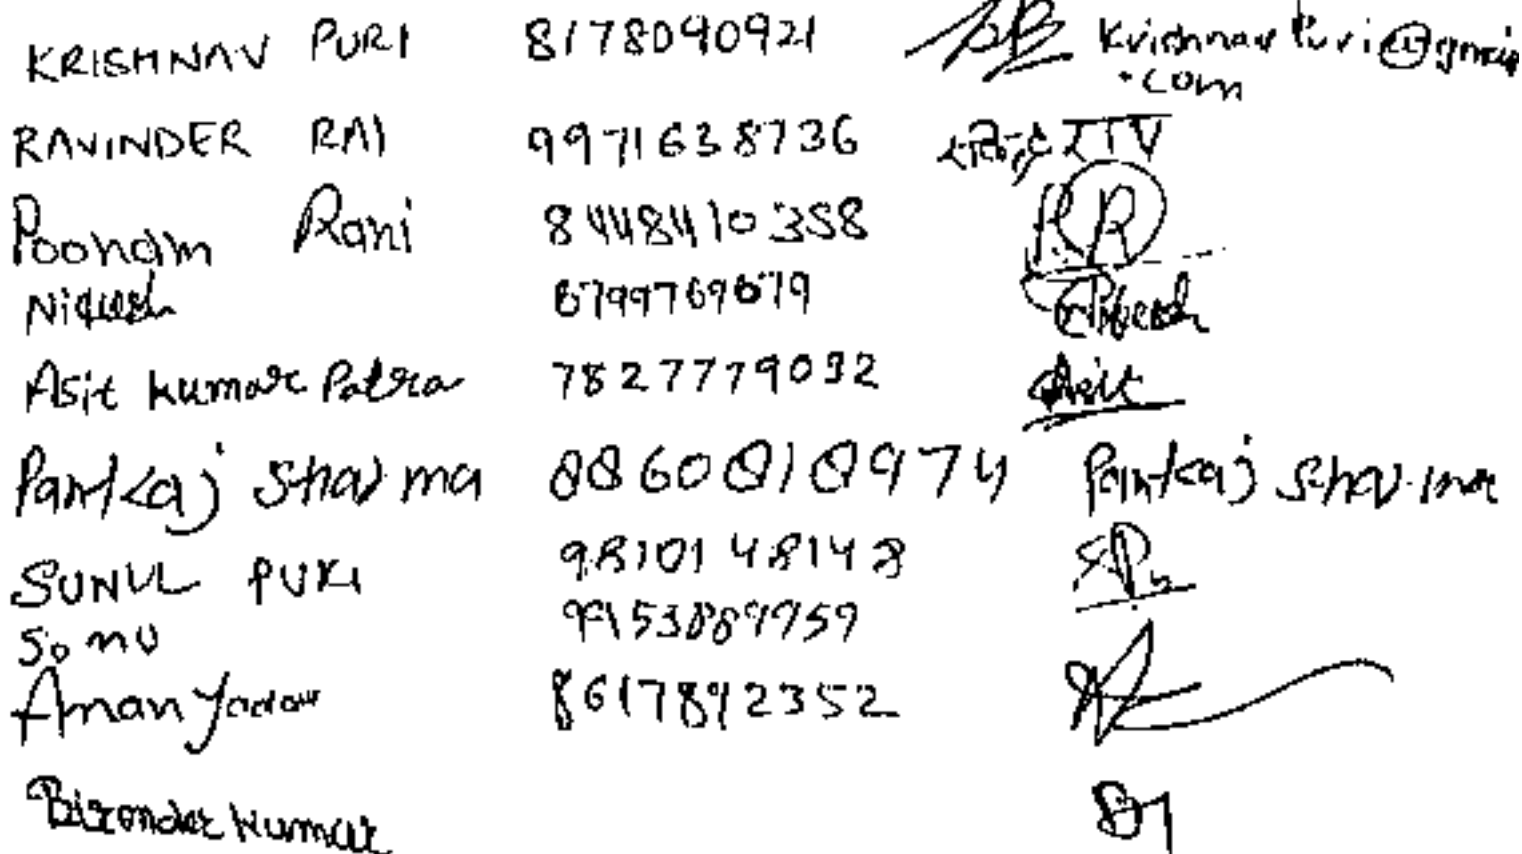 KRISHNAV PURI 8178090921 Krishnav Puri@gmail
.com
RAVINDER RAI 9971638736 रविन्द्र राय
Poonam Rani 8448410358
Nitesh 8799769679 Nitesh
Asit Kumar Patra 7827779032 Asit
Pankaj Sharma 8860818974 Pankaj Sharma
SUNIL PURI 9810148148 SP
Sonu 9953889959
Aman Yadav 8617892352
Birender Kumar